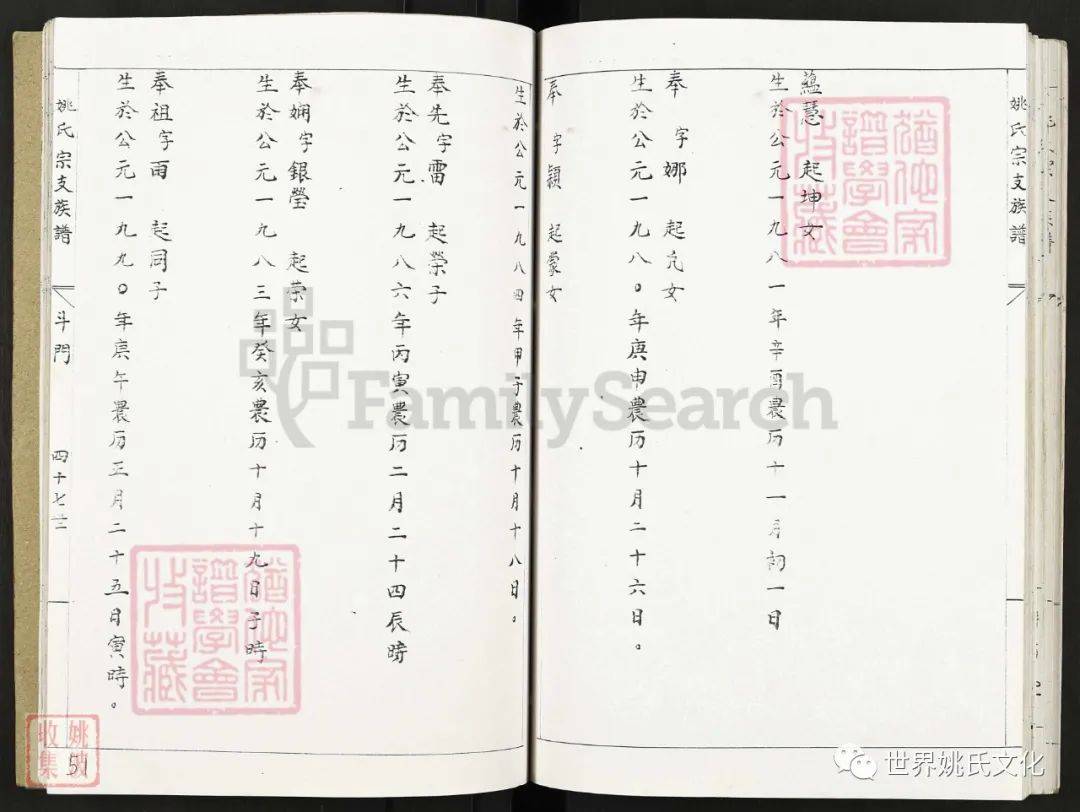 姚氏宗支族譜
蘊慧 起坤女
生於公元一九八一年辛酉農历十一月初一日
奉 字娜 起凢女
生於公元一九八〇年庚申農历十月二十六日。
奉 字穎 起蒙女
生於公元一九八四年甲子農历十月十八日。
奉先字雷 起荣子
生於公元一九八六年丙寅農历二月二十四辰時
奉娴字銀瑩 起荣女
生於公元一九八三年癸亥農历十月十九日子時
奉祖字雨 起同子
生於公元一九九〇年庚午農历正月二十五日寅時。
姚氏宗支族譜 斗門 四十七
猶他家譜學會收藏
猶他家譜學會收藏
FamilySearch
收集
51
世界姚氏文化